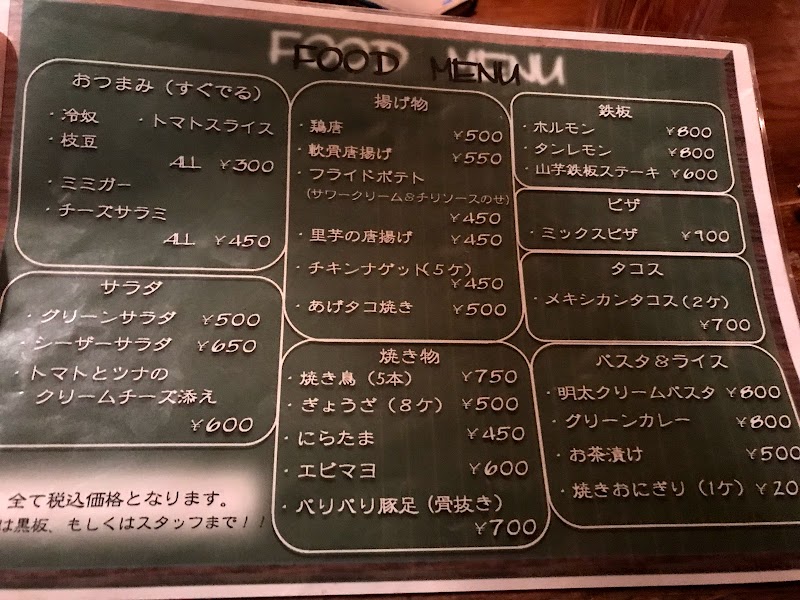 FOOD MENU
おつまみ（すぐでる）
・冷奴 ・トマトスライス
・枝豆
ALL ¥300
・ミミガー
・チーズサラミ
ALL ¥450
サラダ
・グリーンサラダ ¥500
・シーザーサラダ ¥650
・トマトとツナの
クリームチーズ添え
¥600
全て税込価格となります。
は黒板、もしくはスタッフまで！！
揚げ物
・鶏唐 ¥500
・軟骨唐揚げ ¥550
・フライドポテト
（サワークリーム＆チリソースのせ）
¥450
・里芋の唐揚げ ¥450
・チキンナゲット（５ケ）
¥450
・あげタコ焼き ¥500
焼き物
・焼き鳥（5本） ¥750
・ぎょうざ（８ケ） ¥500
・にらたま ¥450
・エビマヨ ¥600
・パリパリ豚足（骨抜き）
¥700
鉄板
・ホルモン ¥800
・タンレモン ¥800
・山芋鉄板ステーキ ¥600
ピザ
・ミックスピザ ¥900
タコス
・メキシカンタコス（２ケ）
¥700
パスタ＆ライス
・明太クリームパスタ ¥800
・グリーンカレー ¥800
・お茶漬け ¥500
・焼きおにぎり（1ケ） ¥20